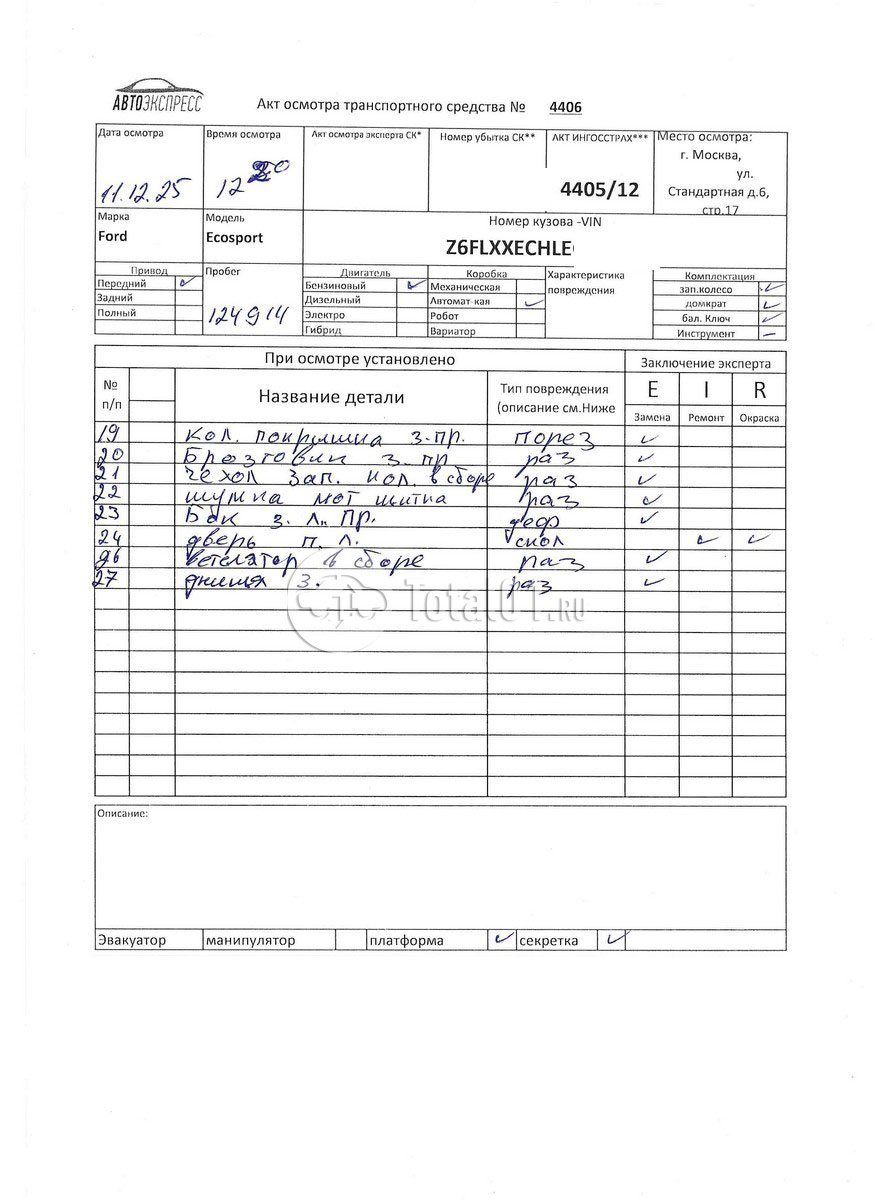 АВТОЭКСПРЕСС
Акт осмотра транспортного средства № 4406
Дата осмотра
11.12.25
Время осмотра
12
Акт осмотра эксперта СК*
Номер убытка СК**
АКТ ИНГОССТРАХ***
4405/12
Место осмотра:
г. Москва,
ул.
Стандартная д.6,
стр.17
Марка
Ford
Модель
Ecosport
Номер кузова -VIN
Z6FLXXECHLE
Привод
Передний ✓
Задний
Полный
Пробег
124914
Двигатель
Бензиновый ✓
Дизельный
Электро
Гибрид
Коробка
Механическая
Автомат-кая ✓
Робот
Вариатор
Характеристика
повреждения
Комплектация
зап.колесо ✓
домкрат ✓
бал. Ключ ✓
Инструмент –
При осмотре установлено
Заключение эксперта
№
п/п
Название детали
Тип повреждения
(описание см.Ниже
E I R
Замена Ремонт Окраска
19 кол. покрышка з.пр. порез ✓
20 Брызговик з.пр раз ✓
21 чехол зап. кол. в сборе раз ✓
22 шумка мот щитка раз ✓
23 Бак з. л. пр. деф ✓
24 дверь п. л. скол ✓ ✓
26 в сборе раз ✓
27 з. раз ✓
Total01.RU
Описание:
Эвакуатор манипулятор платформа ✓ секретка ✓